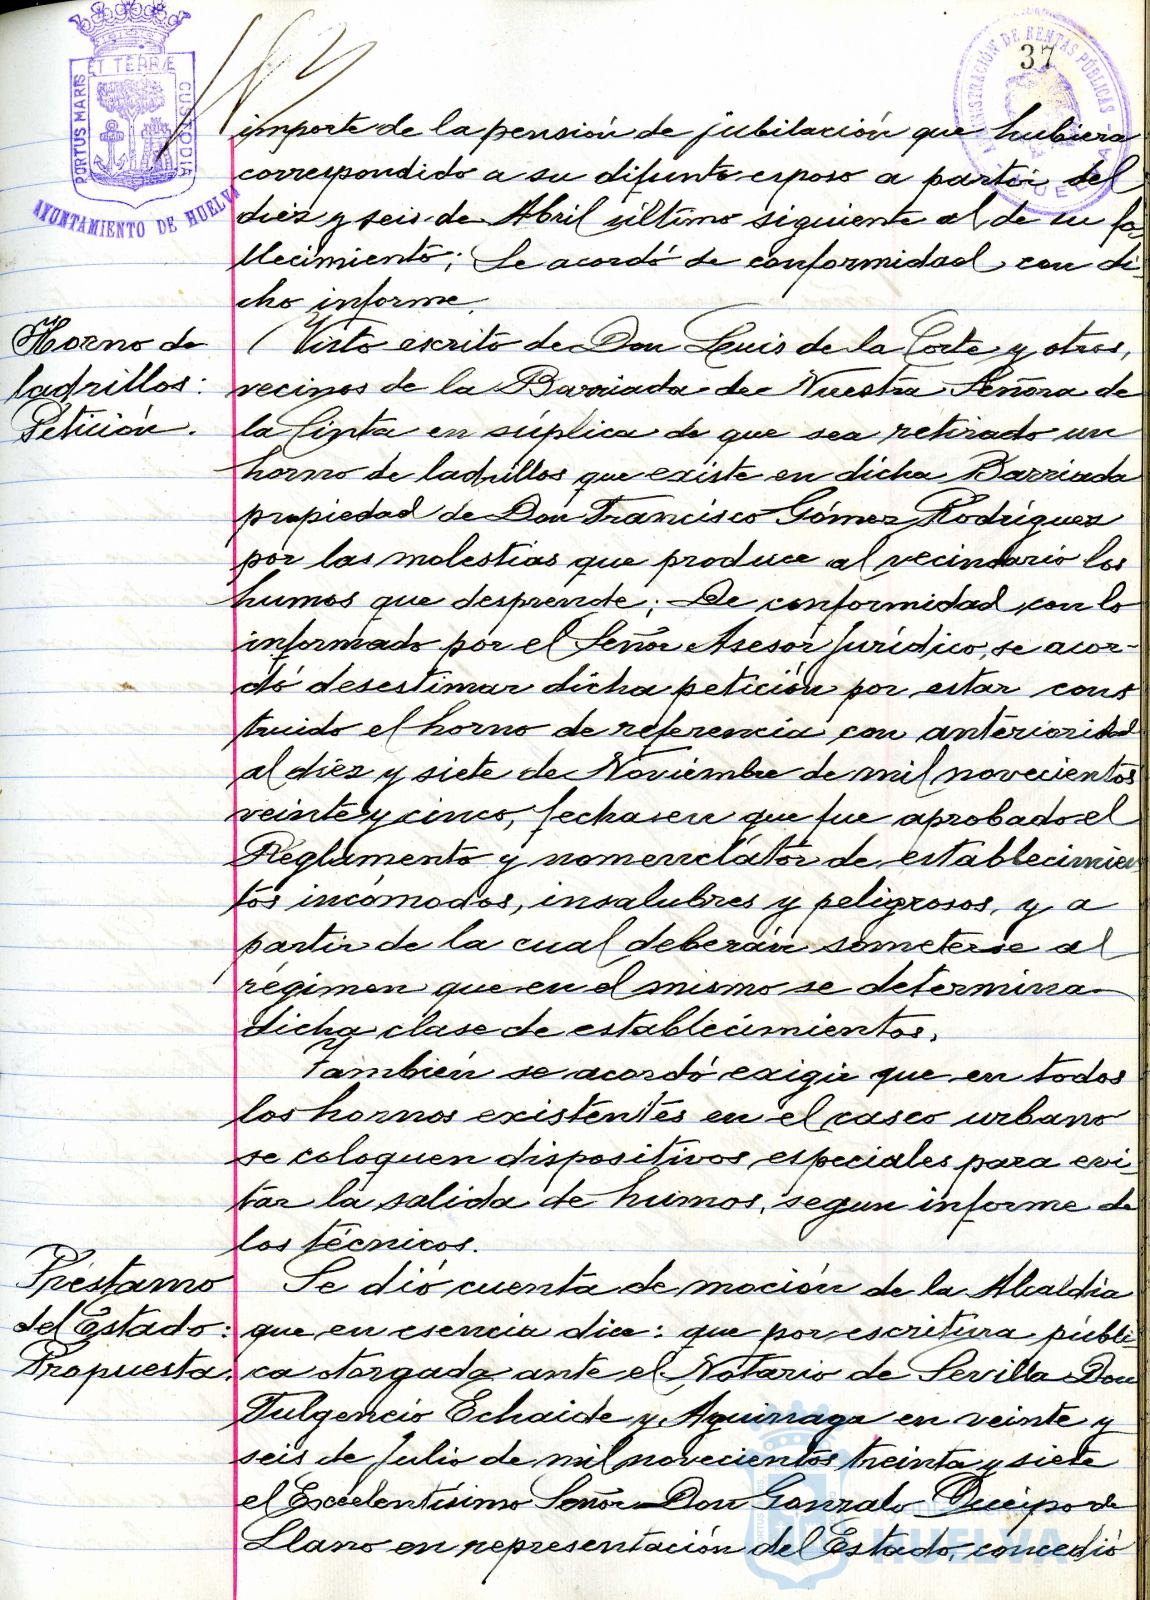 37
PORTUS MARIS
ET TERRÆ
CUSTODIA
AYUNTAMIENTO DE HUELVA
ADMINISTRACIÓN DE RENTAS PÚBLICAS
importe de la pensión de jubilación que hubiera
correspondido a su difunto esposo a partir del
diez y seis de Abril último siguiente al de su fa
llecimiento; Se acordó de conformidad con di-
cho informe.
Horno de
ladrillos:
Petición.
Visto escrito de Don Luis de la Corte y otros,
vecinos de la Barriada de Nuestra Señora de
la Cinta en súplica de que sea retirado un
horno de ladrillos que existe en dicha Barriada
propiedad de Don Francisco Gómez Rodríguez
por las molestias que produce al vecindario los
humos que desprende; De conformidad con lo
informado por el Señor Asesor Jurídico, se acor-
dó desestimar dicha petición por estar cons
truido el horno de referencia con anterioridad
al diez y siete de Noviembre de mil novecientos
veinte y cinco, fecha en que fue aprobado el
Reglamento y nomenclátor de establecimien
tos incómodos, insalubres y peligrosos, y a
partir de la cual deberán someterse al
régimen que en el mismo se determina
dicha clase de establecimientos.
También se acordó exigir que en todos
los hornos existentes en el casco urbano
se coloquen dispositivos especiales para evi-
tar la salida de humos, segun informe de
los técnicos.
Préstamo
del Estado:
Propuesta.
Se dió cuenta de moción de la Alcaldía
que en esencia dice: que por escritura públi-
ca otorgada ante el Notario de Sevilla Don
Fulgencio Echaide y Aguinaga en veinte y
seis de Julio de mil novecientos treinta y siete
el Excelentísimo Señor Don Gonzalo Queipo de
Llano en representación del Estado, concedió
HUELVA